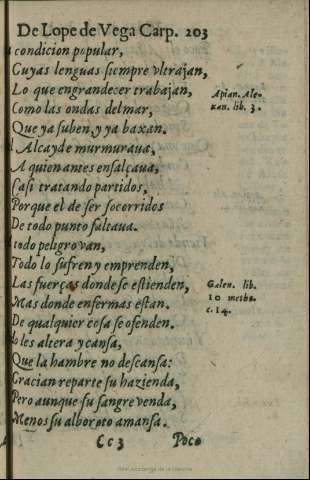 De Lope de Vega Carp. 203
condicion popular,
Cuyas lenguas siempre vltrajan,
Lo que engrandecer trabajan,
Como las ondas del mar,
Que ya suben, y ya baxan.
l Alcayde murmuraua,
A quien antes ensalçaua,
Casi tratando partidos,
Porque el de ser socorridos
De todo punto faltaua.
todo peligro van,
Todo lo sufren y emprenden,
Las fuerças donde se estienden,
Mas donde enfermas estan.
De qualquier cosa se ofenden.
o les altera y cansa,
Que la hambre no descansa:
Gracian reparte su hazienda,
Pero aunque su sangre venda,
Menos su alboroto amansa.
Cc3 Poco
Apian. Ale-
xan. lib. 3.
Galen. lib.
10 metho.
c. 14.